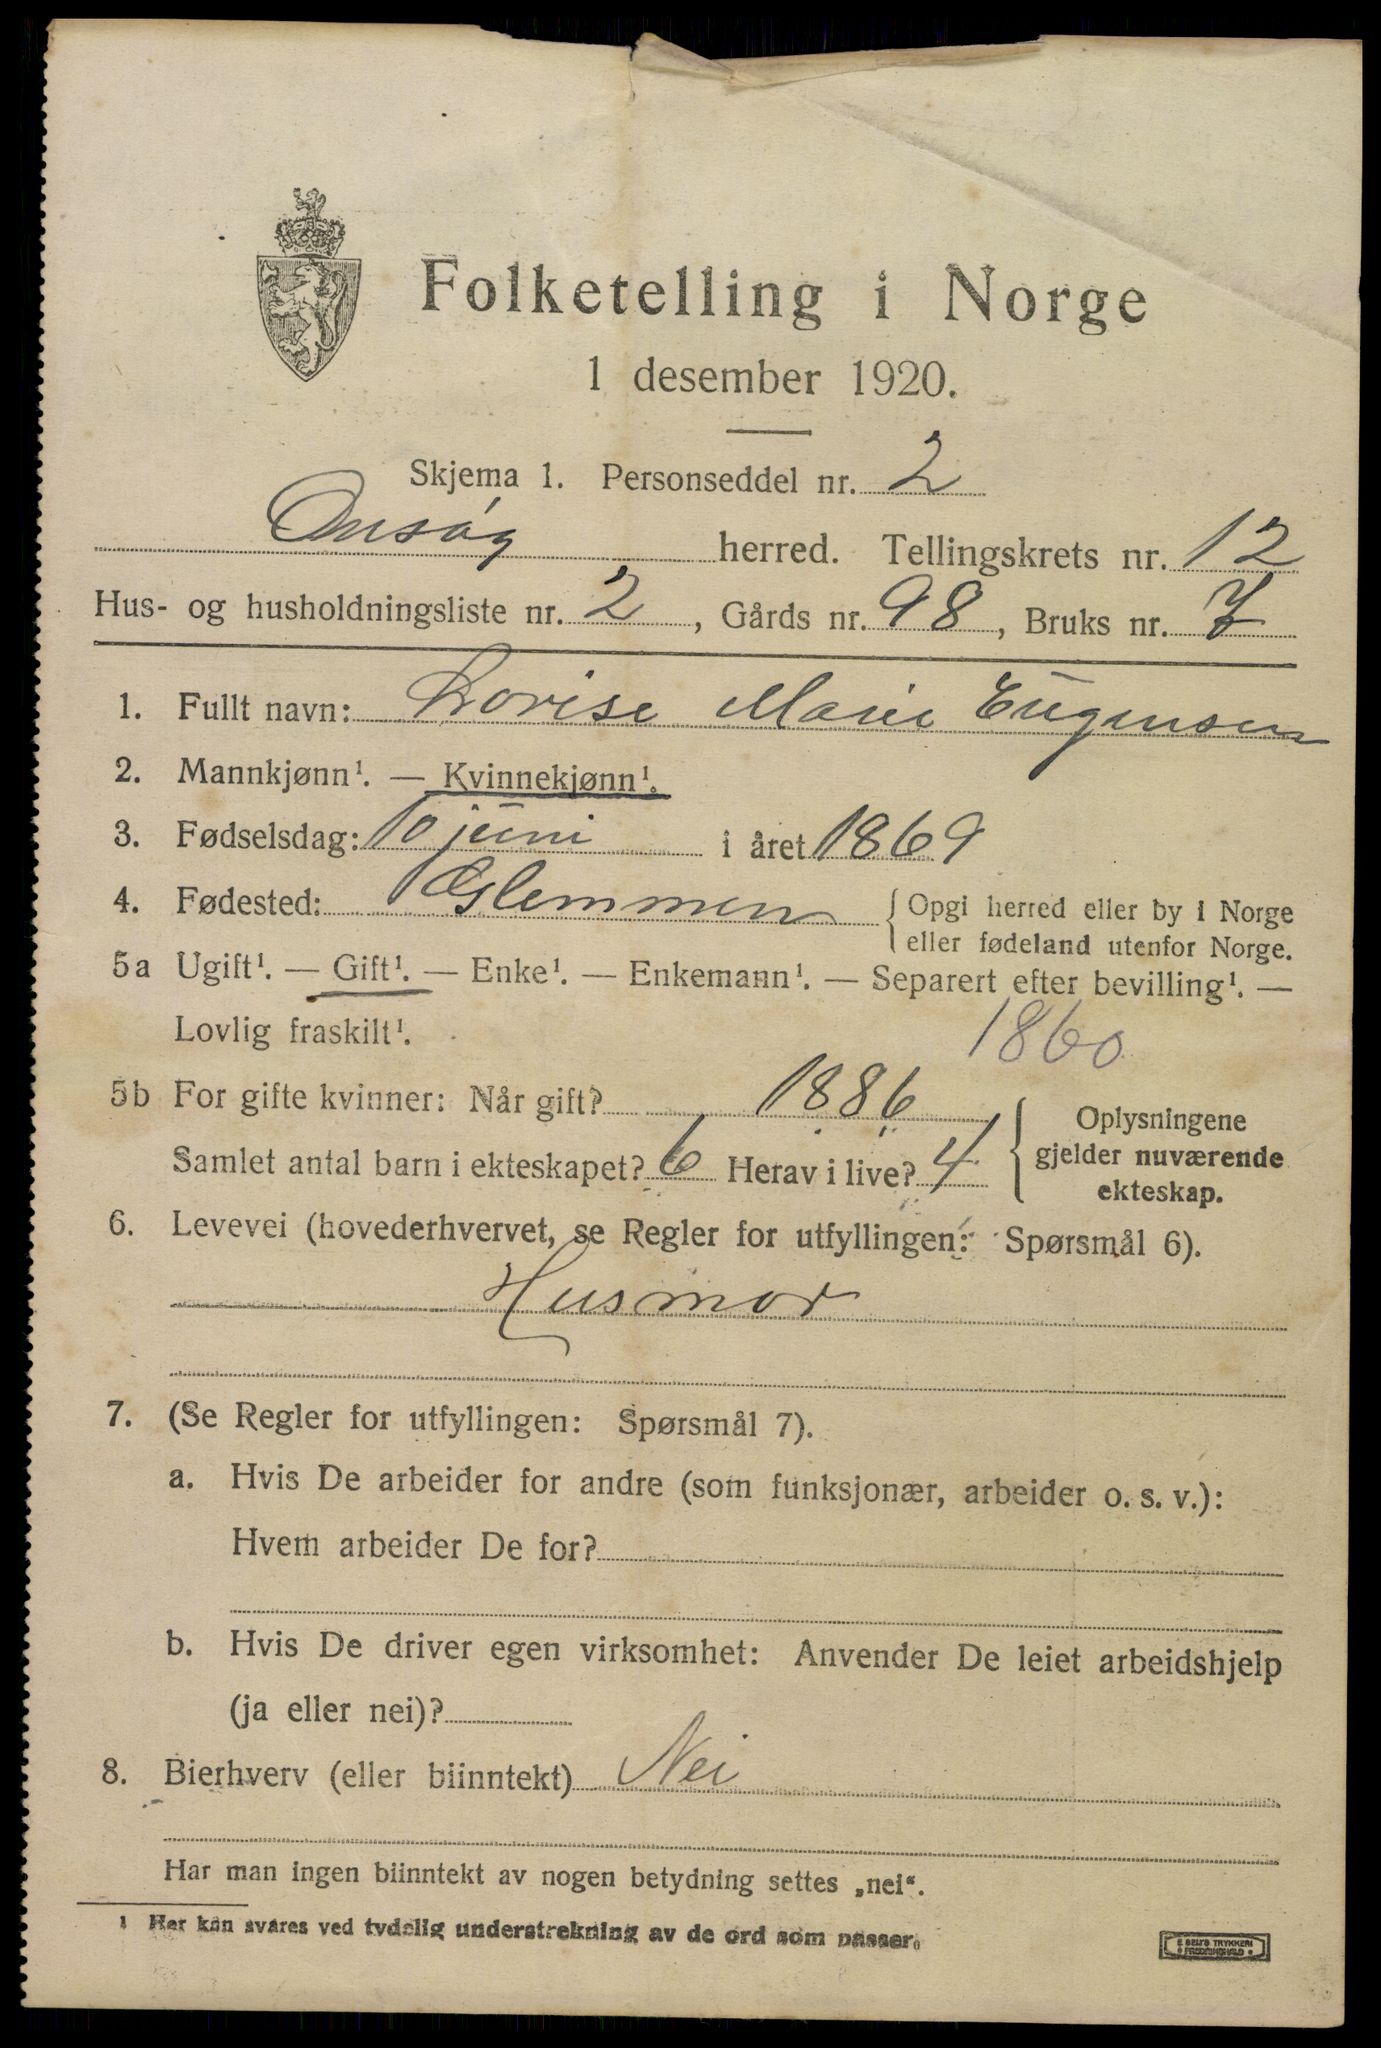 Folketelling i Norge
1 desember 1920.
Skjema 1. Personseddel nr. 2
Onsøy herred. Tellingskrets nr. 12
Hus- og husholdningsliste nr. 2, Gårds nr. 98, Bruks nr. 7
1. Fullt navn: Lovise Marie Eugensen
2. Mannkjønn¹. — Kvinnekjønn¹.
3. Fødselsdag: 10 juni i året 1869
4. Fødested: Glemmen { Opgi herred eller by i Norge
eller fødeland utenfor Norge.
5a Ugift¹. — Gift¹. — Enke¹. — Enkemann¹. — Separert efter bevilling¹. —
Lovlig fraskilt¹. 1860
5b For gifte kvinner: Når gift? 1886
Samlet antal barn i ekteskapet? 6 Herav i live? 4 { Oplysningene
gjelder nuværende
ekteskap.
6. Levevei (hovederhvervet, se Regler for utfyllingen: Spørsmål 6).
Husmor
7. (Se Regler for utfyllingen: Spørsmål 7).
a. Hvis De arbeider for andre (som funksjonær, arbeider o. s. v.):
Hvem arbeider De for?
b. Hvis De driver egen virksomhet: Anvender De leiet arbeidshjelp
(ja eller nei)?
8. Bierhverv (eller biinntekt) Nei
Har man ingen biinntekt av nogen betydning settes „nei“.
¹ Her kan svares ved tydelig understrekning av de ord som passer.
E SELTS TRYKKERI
FREDRIKSHALD